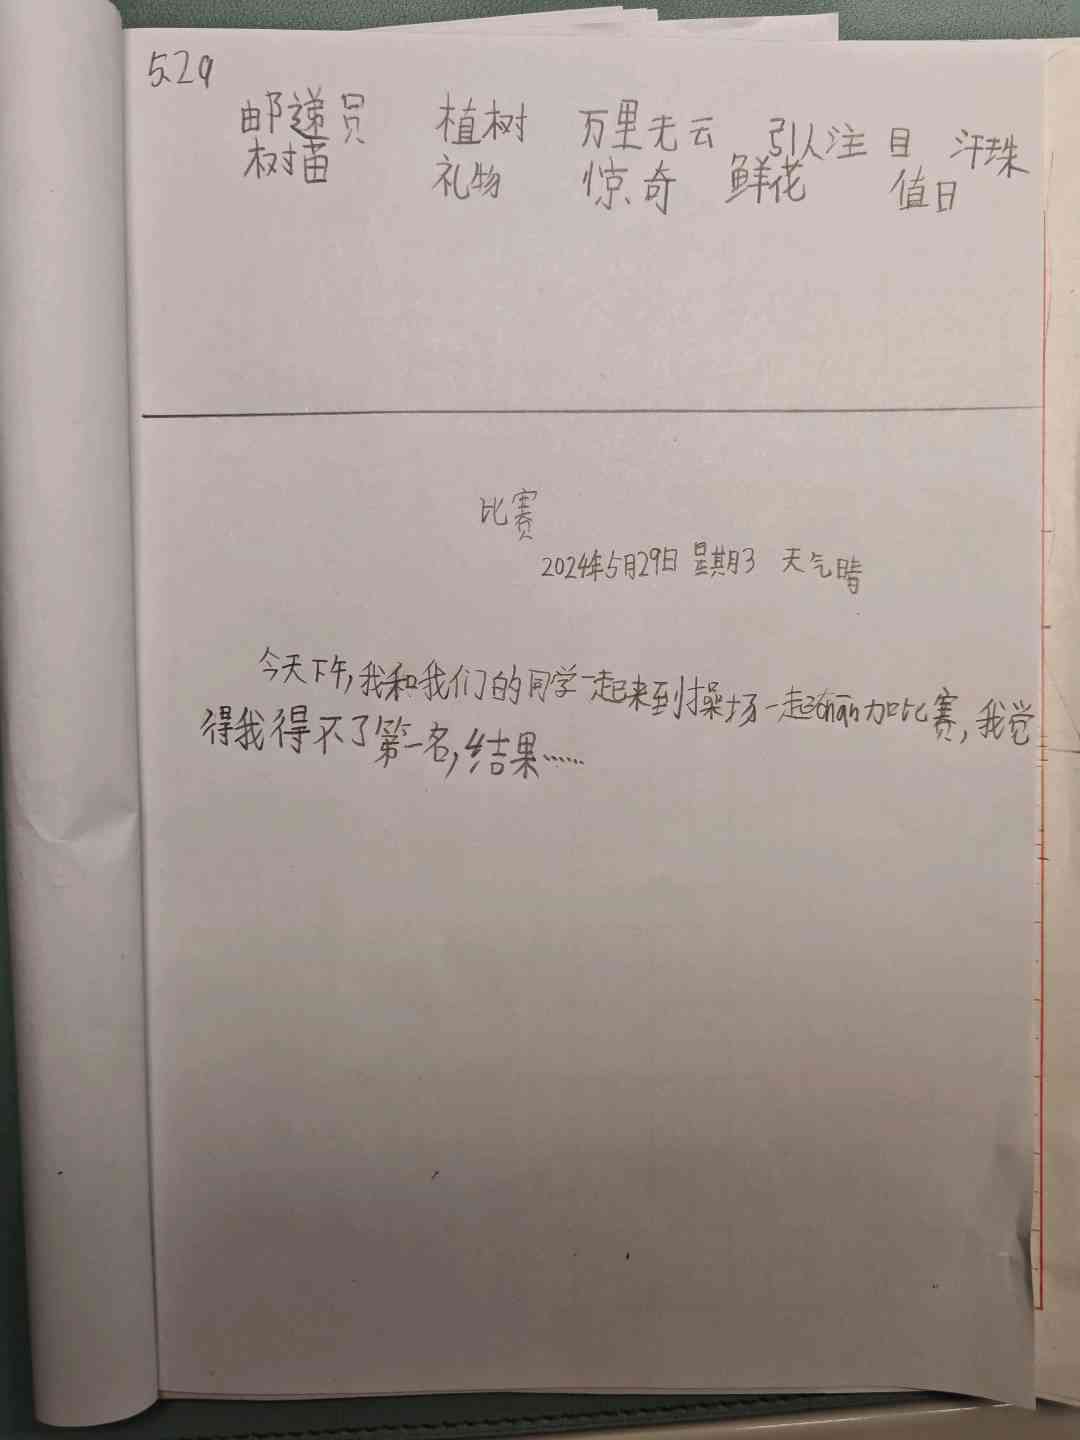 5.29
邮递员 植树 万里无云 引人注目 汗珠
树苗 礼物 惊奇 鲜花 值日
比赛
2024年5月29日 星期3 天气晴
今天下午,我和我们的同学一起来到操场一起can加比赛,我觉
得我得不了第一名,结果……